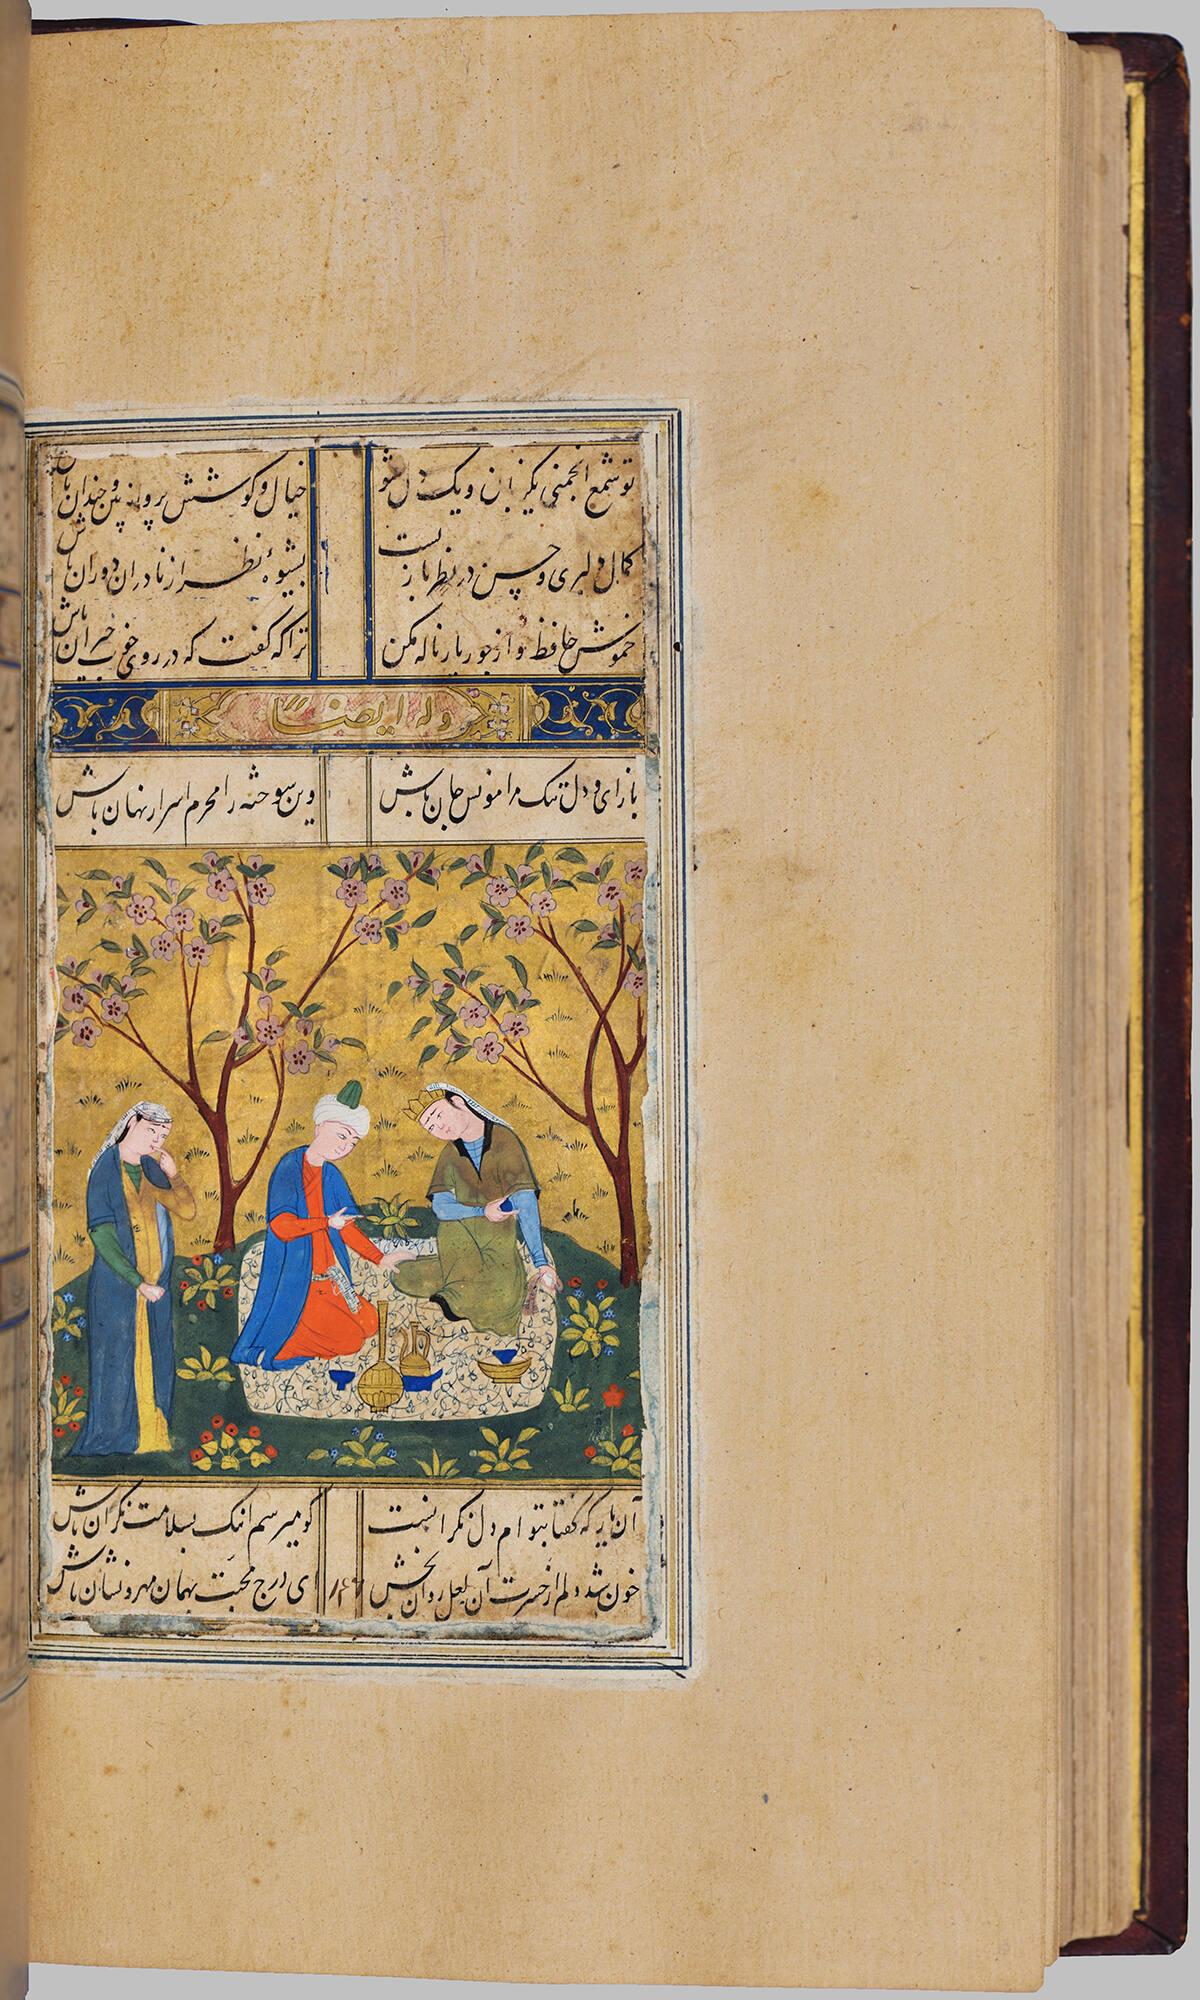 تو شمع انجمنی یکزبان و یک دل شو
خیال و کوشش پروانه بین و خندان باش
کمال دلبری و حسن در نظر بازیست
بشیوهٔ نظر از نادران دوران باش
خموش حافظ و از جور یار ناله مکن
ترا که گفت که در روی خوب حیران باش
وله ایضاً
باز ای و دل تنک مرا مونس جان باش
وین سوخته را محرم اسرار نهان باش
آن یار که گفتا بتوام دل نکرانست
کو میرسم اینک بسلامت نکران باش
خون شد دلم از حسرت آن لعل روان بخش
ای درج محبت بهمان مهر و نشان باش